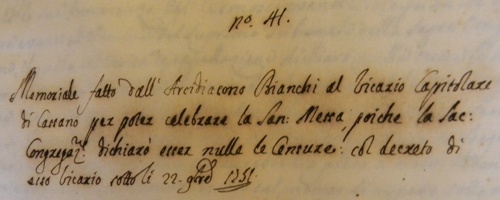 n.º 41.
Memoriale fatto dall' Arcidiacono Bianchi al Vicario Capitolare
di Cassano per poter celebrare la San: Messa, poiche la Sac:
Congregaz.e dichiarò esser nulle le Censure: col decreto di
esso Vicario sotto li 22